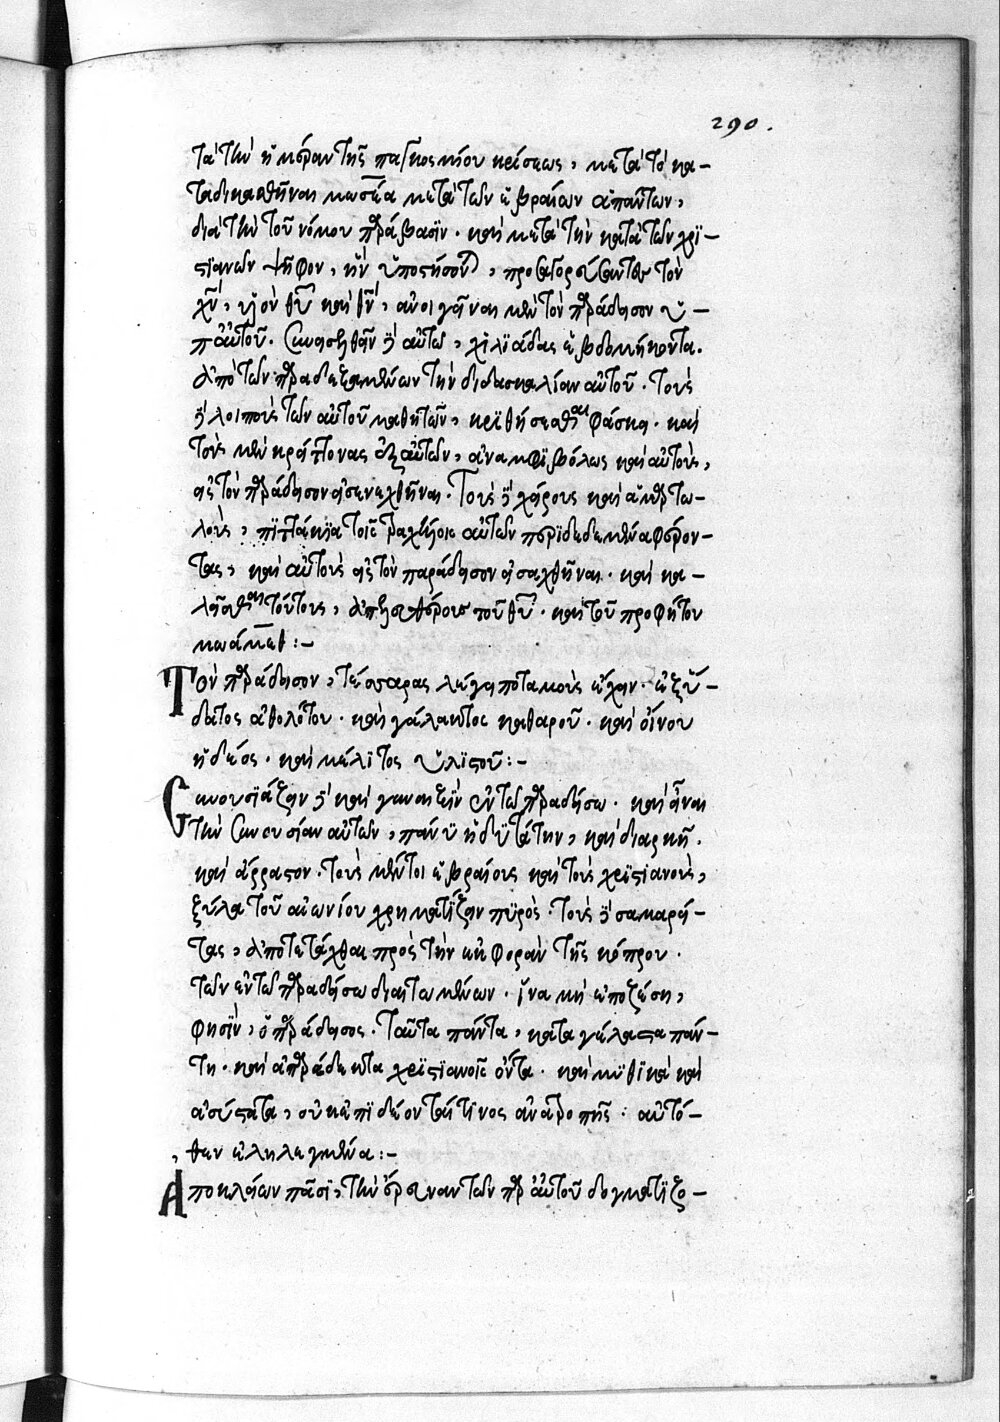 290.
τὰ τὴν ἡμέραν τῆς παγκοσμίου κρίσεως, μετὰ τὸ κα-
ταδικασθῆναι μωσέα μετὰ τῶν ἑβραίων ἁπάντων,
διὰ τὴν τοῦ νόμου παράβασϊν. καὶ μετὰ τὴν κατὰ τῶν χρϊ-
στϊανῶν ψῆφον, ἣν ὑποστήσονται, προσαγορεύσαντες τὸν
χν, υἱὸν θυ καὶ θν, ἀνοιγῆναι μὲν τὸν παράδεισον ὑ-
π αὐτοῦ. συνεισελθεῖν δ' αὐτῶ, χιλϊάδας ἑβδομήκοντα.
ἀπὸ τῶν παραδεξαμένων τὴν διδασκαλίαν αὐτοῦ. τοὺς
δὲ λοιποὺς τῶν αὐτοῦ μαθητῶν, κρϊθήσεσθαι φάσκει. καὶ
τοὺς μὲν κρείττονας ἐξ αὐτῶν, ἀναμφϊβόλως καὶ αὐτοὺς,
εἰς τὸν παράδεισον εἰσενεχθῆναι. Τοὺς δὲ χείρους καὶ ἁμαρτω-
λοὺς, πϊττάκϊα τοῖς τραχήλοις αὐτῶν περϊδεδεμένα φέρον-
τας, καὶ αὐτοὺς εἰς τὸν παράδεισον εἰσαχθῆναι. καὶ κα-
λεῖσθαι τούτους, ἀπελευθέρους τοῦ θυ. καὶ τοῦ προφήτου
μωάμεθ:-
Τὸν παράδεισον, τέσσαρας λέγει ποταμοὺς ἔχειν. ἐξ ὕ-
δατος ἀθολώτου. καὶ γάλακτος καθαροῦ. καὶ οἴνου
ἡδέος. καὶ μέλϊτος ὑλϊστοῦ:-
Συνουσϊάζειν δὲ καὶ γυναιξὶν ἐν τῶ παραδείσω. καὶ εἶναι
τὴν συνουσίαν αὐτῶν, πάνυ ἡδϋτάτην, καὶ διαρκῆ.
καὶ ἄρρευστον. τοὺς μέντοι ἑβραίους καὶ τοὺς χρϊστϊανοὺς,
ξύλα τοῦ αἰωνίου χρηματίζειν πϋρός. τοὺς δὲ σαμαρεί-
τας, ἀποτετάχθαι πρὸς τὴν ἐκφορὰν τῆς κόπρου.
τῶν ἐν τῶ παραδείσω διαιτωμένων. ἵνα μὴ ἐποζέση,
φησῒν, ὁ παράδεισος. Ταῦτα πάντα, καταγέλαστα πάν-
τη. καὶ ἀπαράδεκτα χρϊστϊανοῖς ὄντα. καὶ μϋθϊκὰ καὶ
ἀσύστατα, οὐκ ἐπϊδέονταί τϊνος ἀνατροπῆς. αὐτό-
θεν ἐληλεγμένα:-
Ἀποκλείων πᾶσϊ, τὴν ἔρευναν τῶν παρ αὐτοῦ δογματϊζο-